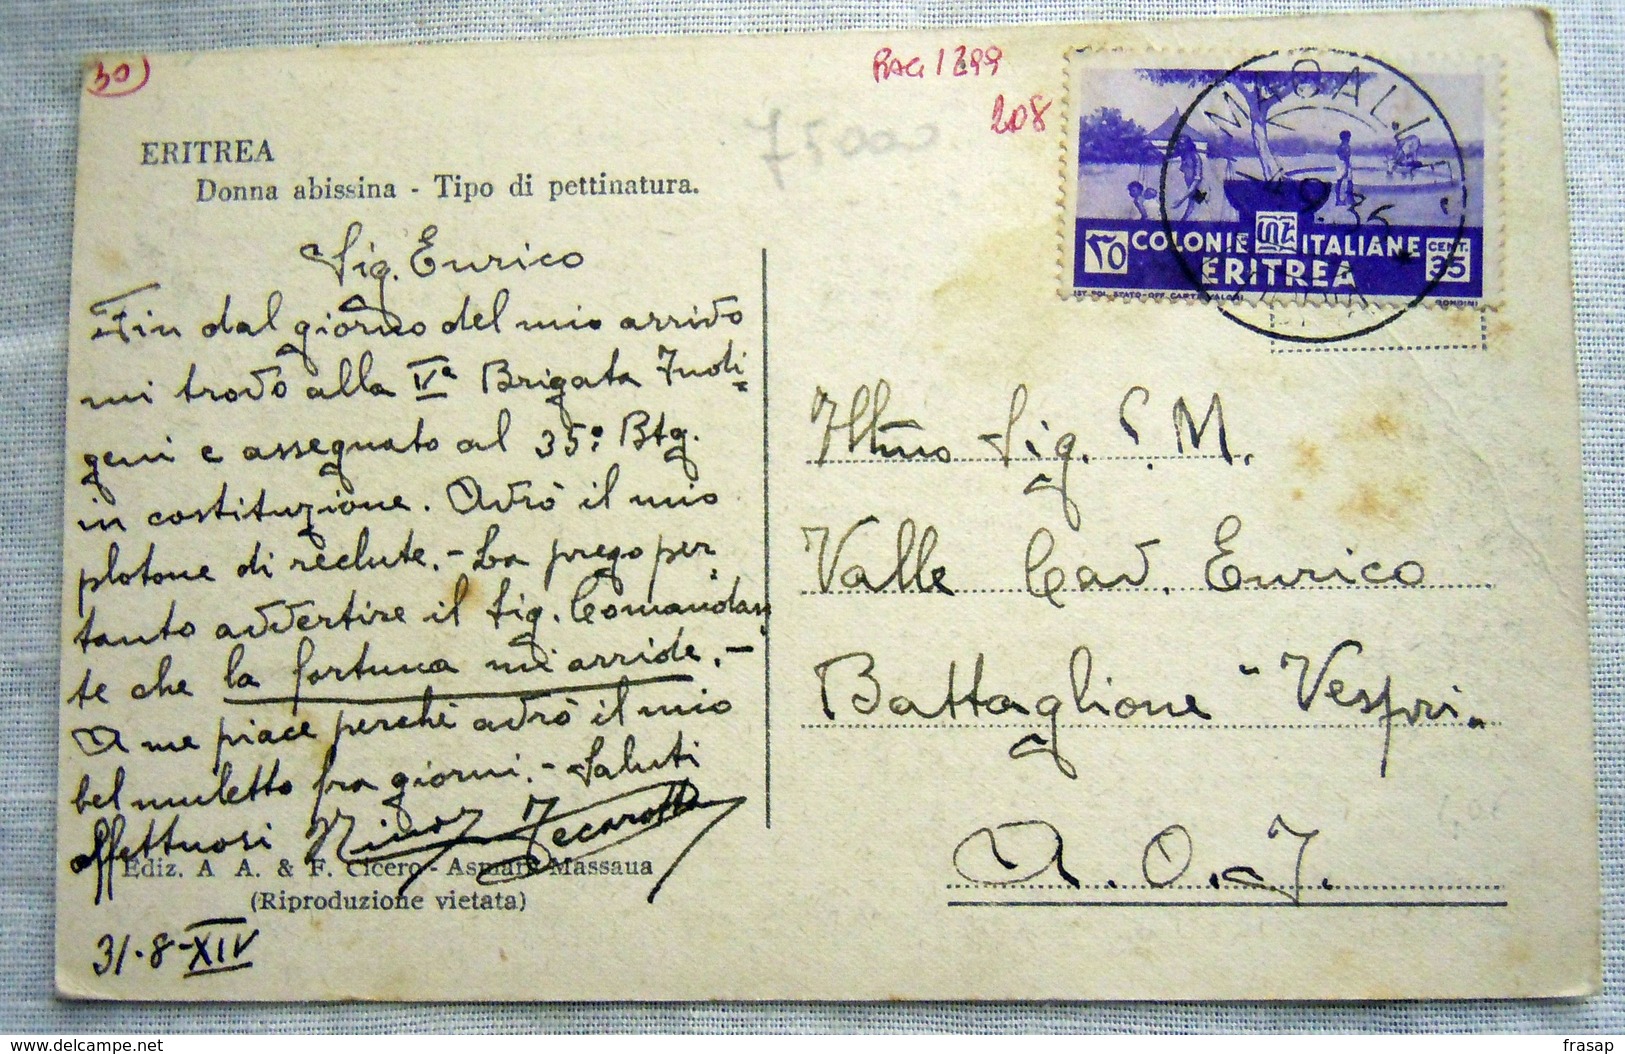 30)
RAG 1299
208
75000
ERITREA
Donna abissina - Tipo di pettinatura.
Sig. Enrico
Fin dal giorno del mio arrivo
mi trovo alla Vª Brigata Indi=
geni e assegnato al 35º Btg.
in costituzione. Avrò il mio
plotone di reclute.- La prego per=
tanto avvertire il Sig. Comandan=
te che la fortuna mi arride.-
A me piace perchè avrò il mio
bel muletto fra giorni.- Saluti
affettuosi
Ediz. A. A. & F. Cicero - Asmara-Massaua
(Riproduzione vietata)
31-8-XIV
COLONIE ITALIANE
CENT. 35
ERITREA
IST. POL. STATO-OFF. CARTE-VALORI
Illmo Sig. S. M.
Valle Cav. Enrico
Battaglione "Vespri"
A.O.I.
delcampe.net
frasap